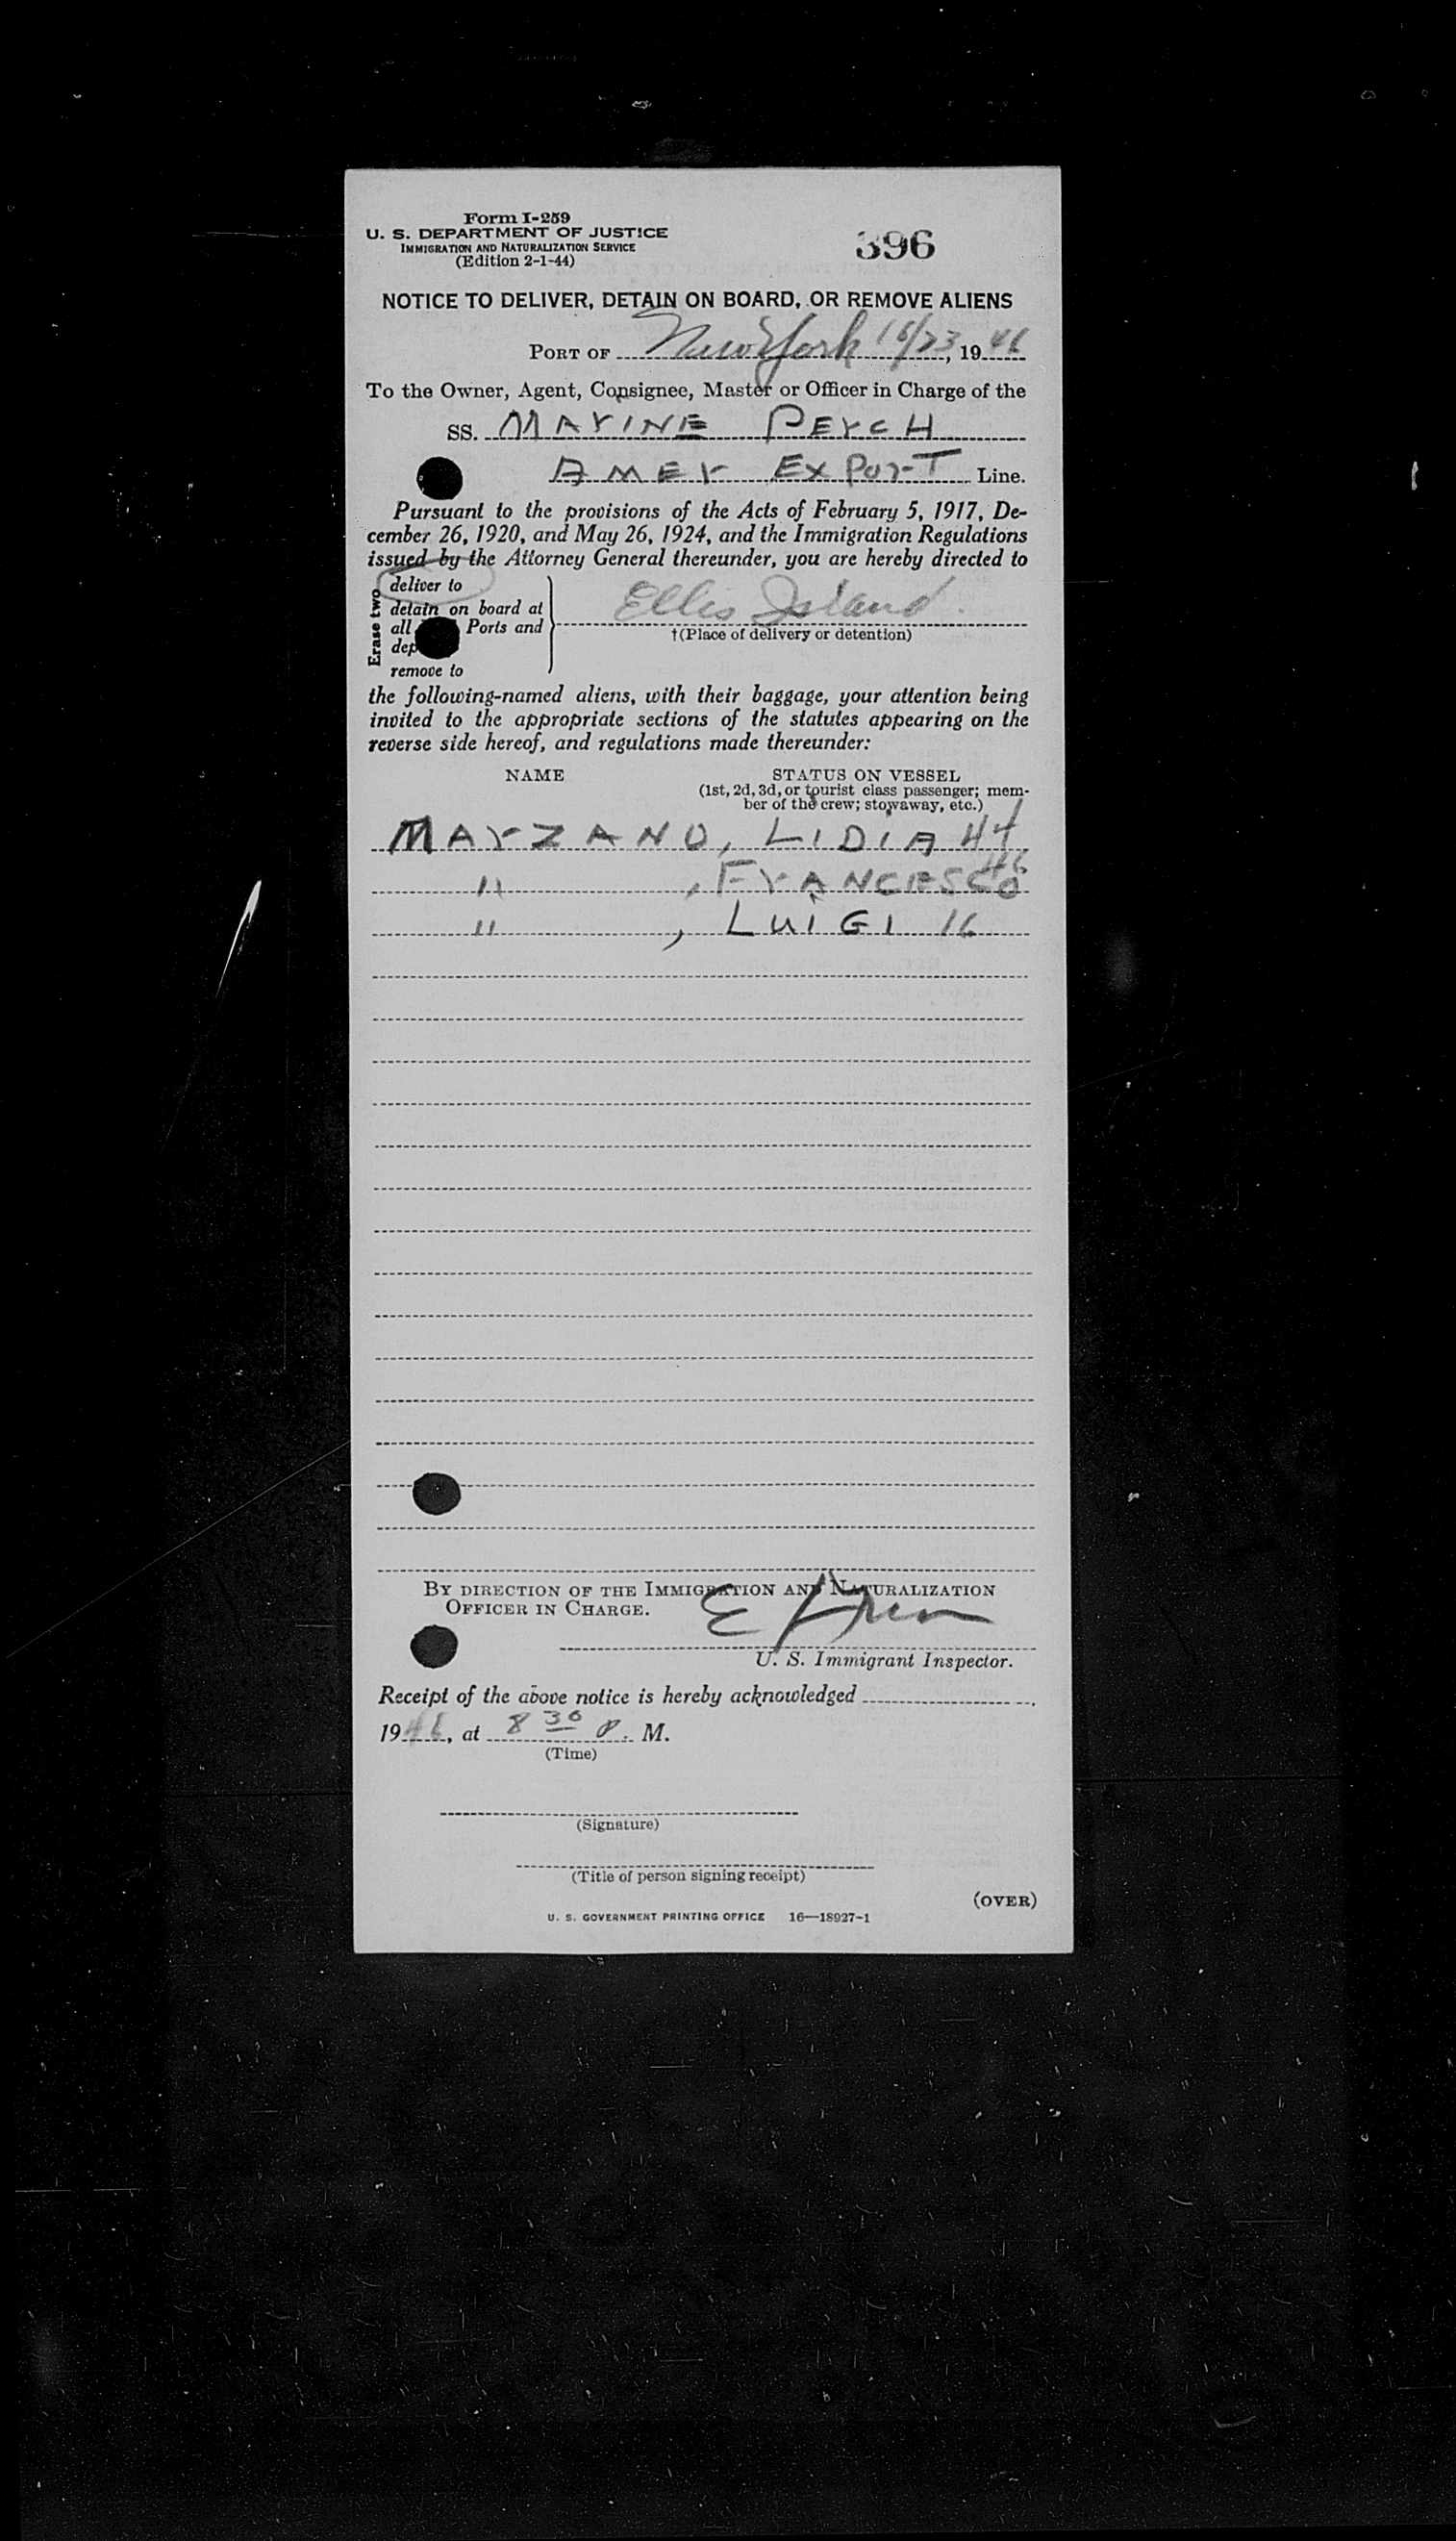 Form I-259
U. S. DEPARTMENT OF JUSTICE
IMMIGRATION AND NATURALIZATION SERVICE
(Edition 2-1-44)
396
NOTICE TO DELIVER, DETAIN ON BOARD, OR REMOVE ALIENS
PORT OF New York 10/23, 1946
To the Owner, Agent, Consignee, Master or Officer in Charge of the
SS. MArINE PErcH
AMEr ExPorT Line.
Pursuant to the provisions of the Acts of February 5, 1917, De-
cember 26, 1920, and May 26, 1924, and the Immigration Regulations
issued by the Attorney General thereunder, you are hereby directed to
Erase two
deliver to
detain on board at
all Ports and
dep
remove to
Ellis Island.
†(Place of delivery or detention)
the following-named aliens, with their baggage, your attention being
invited to the appropriate sections of the statutes appearing on the
reverse side hereof, and regulations made thereunder:
NAME STATUS ON VESSEL
(1st, 2d, 3d, or tourist class passenger; mem-
ber of the crew; stowaway, etc.)
MArZANO, LIDIA 44
" , FrANCESCO 46
" , LuiGI 16
BY DIRECTION OF THE IMMIGRATION AND NATURALIZATION
OFFICER IN CHARGE.
U. S. Immigrant Inspector.
Receipt of the above notice is hereby acknowledged
1946, at 8 30 P. M.
(Time)
(Signature)
(Title of person signing receipt)
(OVER)
U. S. GOVERNMENT PRINTING OFFICE 16—18927-1